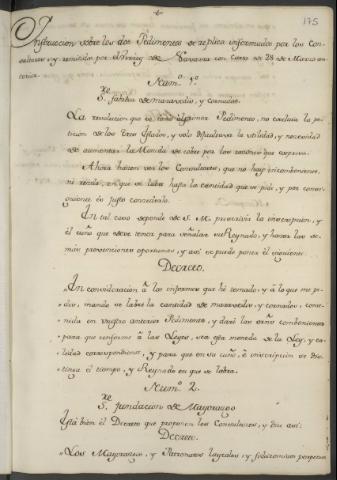 175
Instruccion sobre los dos Pedimentos de replica informados por los Con-
sultores, y remitidos por el Virrey de Navarra con Carta de 28 de Marzo an-
terior.
Num.º 1.º
Re
S. fabrica de maravedis, y cornados.
La resolucion que se tomó al primer Pedimento, no excluía la pe-
ticion de los Tres Estados, y solo dificultava la utilidad, y necesidad
de aumentar la Moneda de cobre por las razones que expresa.
Ahora hacen ver los Consultores, que no hay inconveniente,
ni reparo, en que se labre hasta la cantidad que se pide, y por consi-
guiente es justo concederlo.
En tal caso depende de S. M. prescrivir la inscripcion, y
el cuño que deve tener para señalar su Reynado, y hacer las de-
mas prevenciones oportunas, y asi se puede poner el siguiente.
Decreto.
"En consideracion à los informes que hé tomado, y à lo que me pe-
"dis, mando se labre la cantidad de maravedis, y cornados, conte-
"nida en vuestro anterior Pedimento, y daré las orñs combenientes
"para que conforme à las Leyes, sea esta moneda de la Ley, y ca-
"lidad correspondiente, y para que en su cuño, é inscripcion se dis-
"tinga el tiempo, y Reynado en que se labra.
Num.º 2.
Re
S. fundacion de Mayorazgo
Está bien el Decreto que proponen los Consultores, y dice asi:
Decreto.
"Los Mayorazgos, y Patronatos laycales, y fideicomisos perpetuos